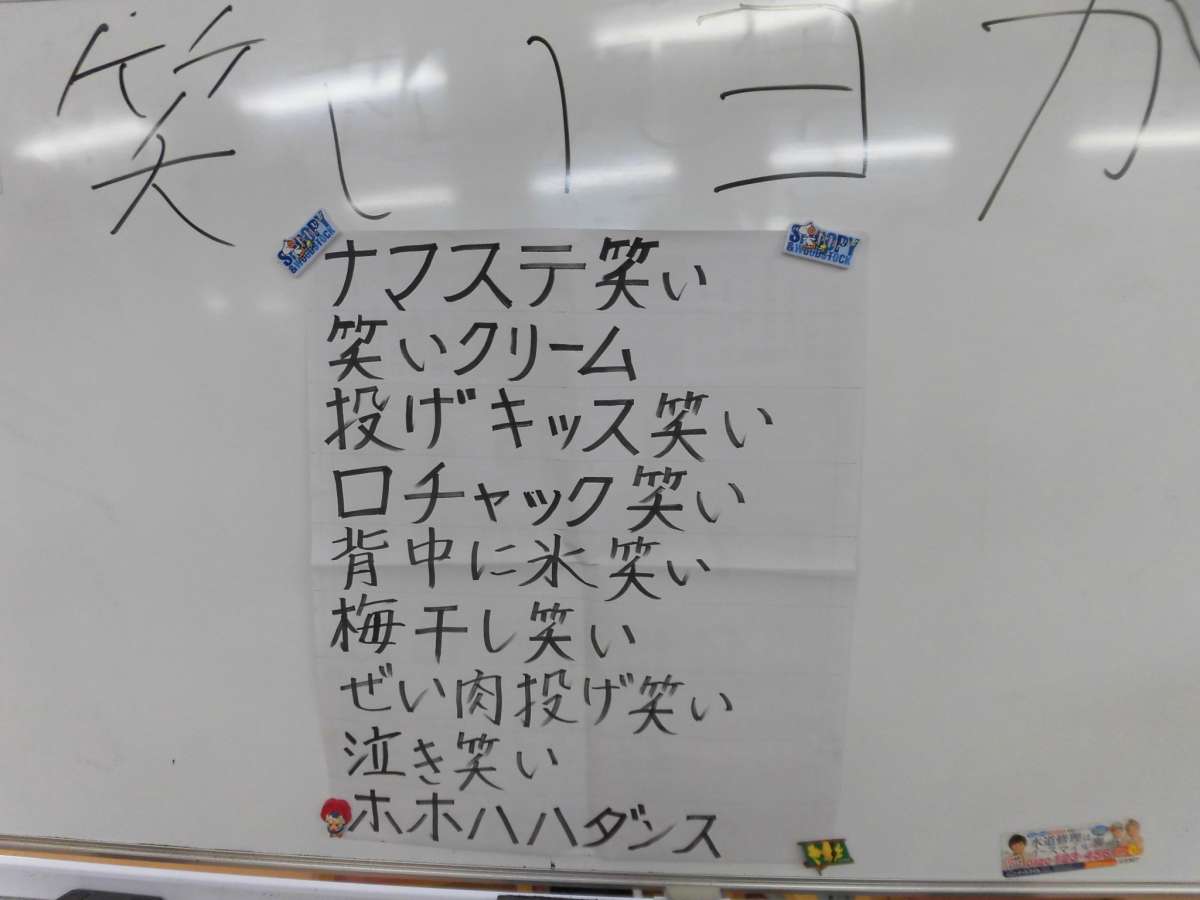 笑いヨガ
SNOOPY
& WOODSTOCK
SNOOPY
& WOODSTOCK
ナマステ笑い
笑いクリーム
投げキッス笑い
口チャック笑い
背中に氷笑い
梅干し笑い
ぜい肉投げ笑い
泣き笑い
ホホハハダンス
水道修理は